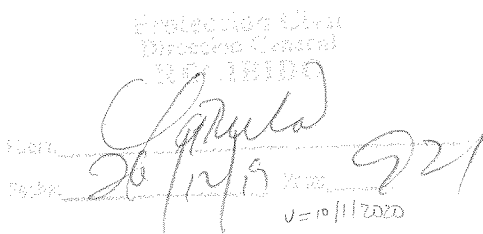 Protección Civil
Dirección General
RECIBIDO
Fecha: 26/12/19 Hora: 921
V=10/1/2020